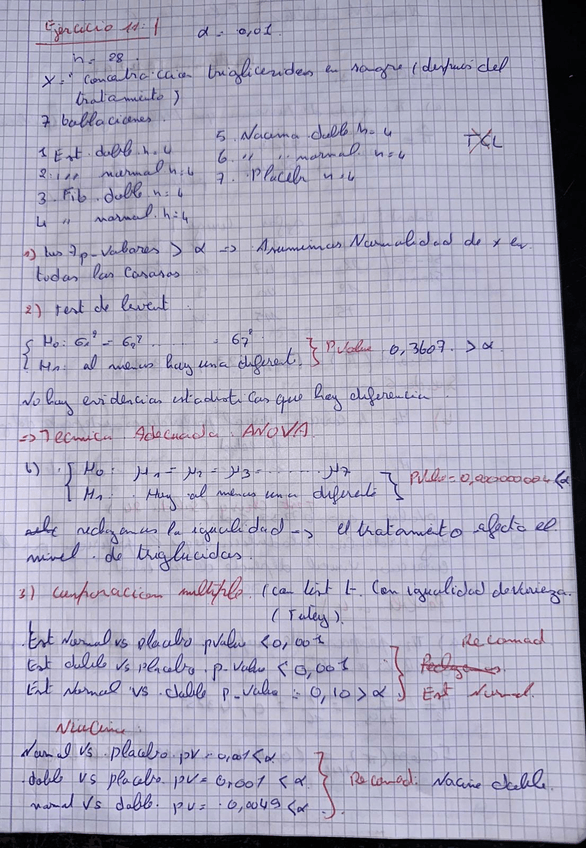 Ejercicio 11.1 α = 0,01
n = 28
X = "Concentracion trigliceridos en sangre (despues del
tratamiento)
7 poblaciones
1 Est doble n=4
2 " normal n=4
3. Fib doble n=4
4 " normal n=4
5. Niacina doble n=4
6. " " normal n=4
7. Placebo n=4
TCL
1) Los 7 p-valores > α => Asumimos Normalidad de x en
todas los casos
2) Test de levent
H0: σ1² = σ2² ....... σ7²
H1: al menos hay una diferente. } PValue 0,3607 > α
No hay evidencias estadisticas que hay diferencia
=> Tecnica Adecuada ANOVA
b) H0: μ1 = μ2 = μ3 = ...... μ7
H1. Hay al menos una diferente } PValue = 0,000000004 < α
rechazamos la igualidad -> el tratamiento afecta el
nivel de
3) Comparacion multiple. (con test t. Con igualidad de
(Tukey).
Est Normal vs placebo pvalue < 0,001
Est doble vs placebo. p-value < 0,001
Est Normal vs doble p-value = 0,10 > α
Recomad
Est Normal.
Normal vs placebo pv = 0,001 < α
doble vs placebo. pv = 0,001 < α
normal vs doble. pv = 0,0049 < α
Recomad: Niacine doble.